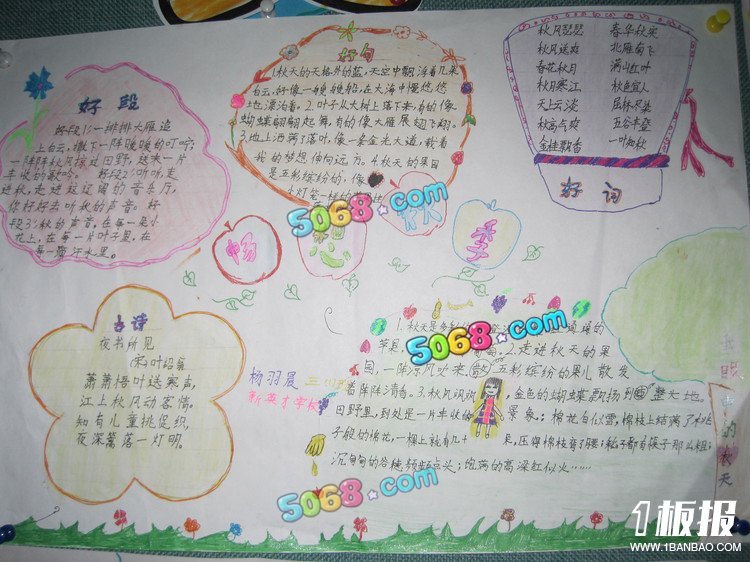 好段
好段1:一排排大雁追
上白云,撒下一阵暖暖的叮咛;
一阵阵秋风掠过田野,送来一片
丰收的歌吟。 好段2:听听,走
进秋,走进这辽阔的音乐厅,
你好好去听秋的声音。好
段3:秋的声音,在每一朵小
花上,在每一片叶子里,在
每一滴汗水里。
好句
1.秋天的天格外的蓝,天空中飘浮着几朵
白云,好像一艘艘船,在大海中慢悠悠
地漂泊着。2.叶子从大树上落下来,有的像
蝴蝶翩翩起舞,有的像大雁展翅飞翔。
3.地上洒满了落叶,像一条金光大道,载着
我的梦想伸向远方。4.秋天的果园
是五彩缤纷的,像
灯笼一样的
秋风瑟瑟 春华秋实
秋风送爽 北雁南飞
春花秋月 满山红叶
秋月寒江 秋色宜人
天上云淡 层林尽染
秋高气爽 五谷丰登
金桂飘香 一叶知秋
好词
畅 秋天 季
5068.com
5068.com
5068.com
5068.com
古诗
夜书所见
(宋)叶绍翁
萧萧梧叶送寒声,
江上秋风动客情。
知有儿童挑促织,
夜深篱落一灯明。
杨羽晨 三
新英才学校
1.秋天是多彩 的
苹果, 葡萄。2.走进秋天的果
园,一阵凉风吹来(散)五彩缤纷的果儿散发
着阵阵清香。3.秋风飒飒,金色的蝴蝶飘扬到 整大地。
田野里,到处是一片丰收的 景象:棉花白似雪,棉枝上结满了
子般的棉花,一棵上就有几十 果,压得棉枝弯了腰;稻子都有筷子那么粗;
沉甸甸的谷穗频频点头;饱满的高粱红似火……
我眼中的秋天
1板报
WWW.1BANBAO.COM